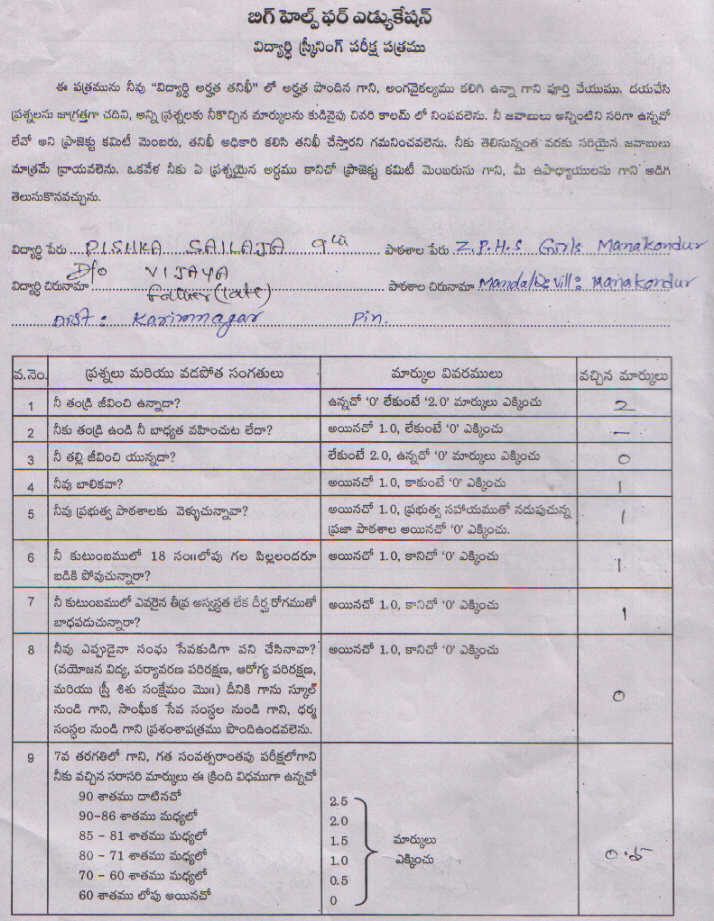 బిగ్ హెల్ప్ ఫర్ ఎడ్యుకేషన్
విద్యార్థి స్క్రీనింగ్ పరీక్ష పత్రము
ఈ పత్రమును నీవు "విద్యార్థి అర్హత తనిఖీ" లో అర్హత పొందిన గాని, అంగవైకల్యము కలిగి ఉన్నా గాని పూర్తి చేయుము. దయచేసి
ప్రశ్నలను జాగ్రత్తగా చదివి, అన్ని ప్రశ్నలకు నీకొచ్చిన మార్కులను కుడివైపు చివరి కాలమ్ లో నింపవలెను. నీ జవాబులు అన్నింటిని సరిగా ఉన్నవో
లేవో అని ప్రాజెక్టు కమిటీ మెంబరు, తనిఖీ అధికారి కలిసి తనిఖీ చేస్తారని గమనించవలెను. నీకు తెలిసున్నంత వరకు సరియైన జవాబులు
మాత్రమే వ్రాయవలెను. ఒకవేళ నీకు ఏ ప్రశ్నయైన అర్థము కానిచో ప్రాజెక్టు కమిటీ మెంబరును గాని, మీ ఉపాధ్యాయులను గాని అడిగి
తెలుసుకొనవచ్చును.
విద్యార్థి పేరు PISHKA SAILAJA 9th పాఠశాల పేరు Z.P.H.S Girls Manakondur
D/o VIJAYA
విద్యార్థి చిరునామా Father (late) పాఠశాల చిరునామా Mandal & Vill: Manakondur
Dist: Karimnagar Pin.
వ.నెం. ప్రశ్నలు మరియు వడపోత సంగతులు మార్కుల వివరములు వచ్చిన మార్కులు
1 నీ తండ్రి జీవించి ఉన్నాడా? ఉన్నచో '0' లేకుంటే '2.0' మార్కులు ఎక్కించు 2
2 నీకు తండ్రి ఉండి నీ బాధ్యత వహించుట లేదా? అయినచో 1.0, లేకుంటే '0' ఎక్కించు –
3 నీ తల్లి జీవించి యున్నదా? లేకుంటే 2.0, ఉన్నచో '0' మార్కులు ఎక్కించు 0
4 నీవు బాలికవా? అయినచో 1.0, కాకుంటే '0' ఎక్కించు 1
5 నీవు ప్రభుత్వ పాఠశాలకు వెళ్ళుచున్నావా? అయినచో 1.0, ప్రభుత్వ సహాయముతో నడుపుచున్న 1
ప్రజా పాఠశాల అయినచో '0' ఎక్కించు.
6 నీ కుటుంబములో 18 సం॥లోపు గల పిల్లలందరూ అయినచో 1.0, కానిచో '0' ఎక్కించు 1
బడికి పోవుచున్నారా?
7 నీ కుటుంబములో ఎవరైన తీవ్ర అస్వస్థత లేక దీర్ఘ రోగముతో అయినచో 1.0, కానిచో '0' ఎక్కించు 1
బాధపడుచున్నారా?
8 నీవు ఎప్పుడైనా సంఘ సేవకుడిగా పని చేసినావా? అయినచో 1.0, కానిచో '0' ఎక్కించు
(వయోజన విద్య, పర్యావరణ పరిరక్షణ, ఆరోగ్య పరిరక్షణ,
మరియు స్త్రీ శిశు సంక్షేమం మొ॥) దీనికి గాను స్కూల్ 0
నుండి గాని, సాంఘీక సేవ సంస్థల నుండి గాని, ధర్మ
సంస్థల నుండి గాని ప్రశంశాపత్రము పొందిఉండవలెను.
9 7వ తరగతిలో గాని, గత సంవత్సరాంతపు పరీక్షలోగాని
నీకు వచ్చిన సరాసరి మార్కులు ఈ క్రింది విధముగా ఉన్నచో
90 శాతము దాటినచో 2.5
90-86 శాతము మధ్యలో 2.0
85 - 81 శాతము మధ్యలో 1.5 మార్కులు
80 - 71 శాతము మధ్యలో 1.0 ఎక్కించు 0.5
70 - 60 శాతము మధ్యలో 0.5
60 శాతము లోపు అయినచో 0